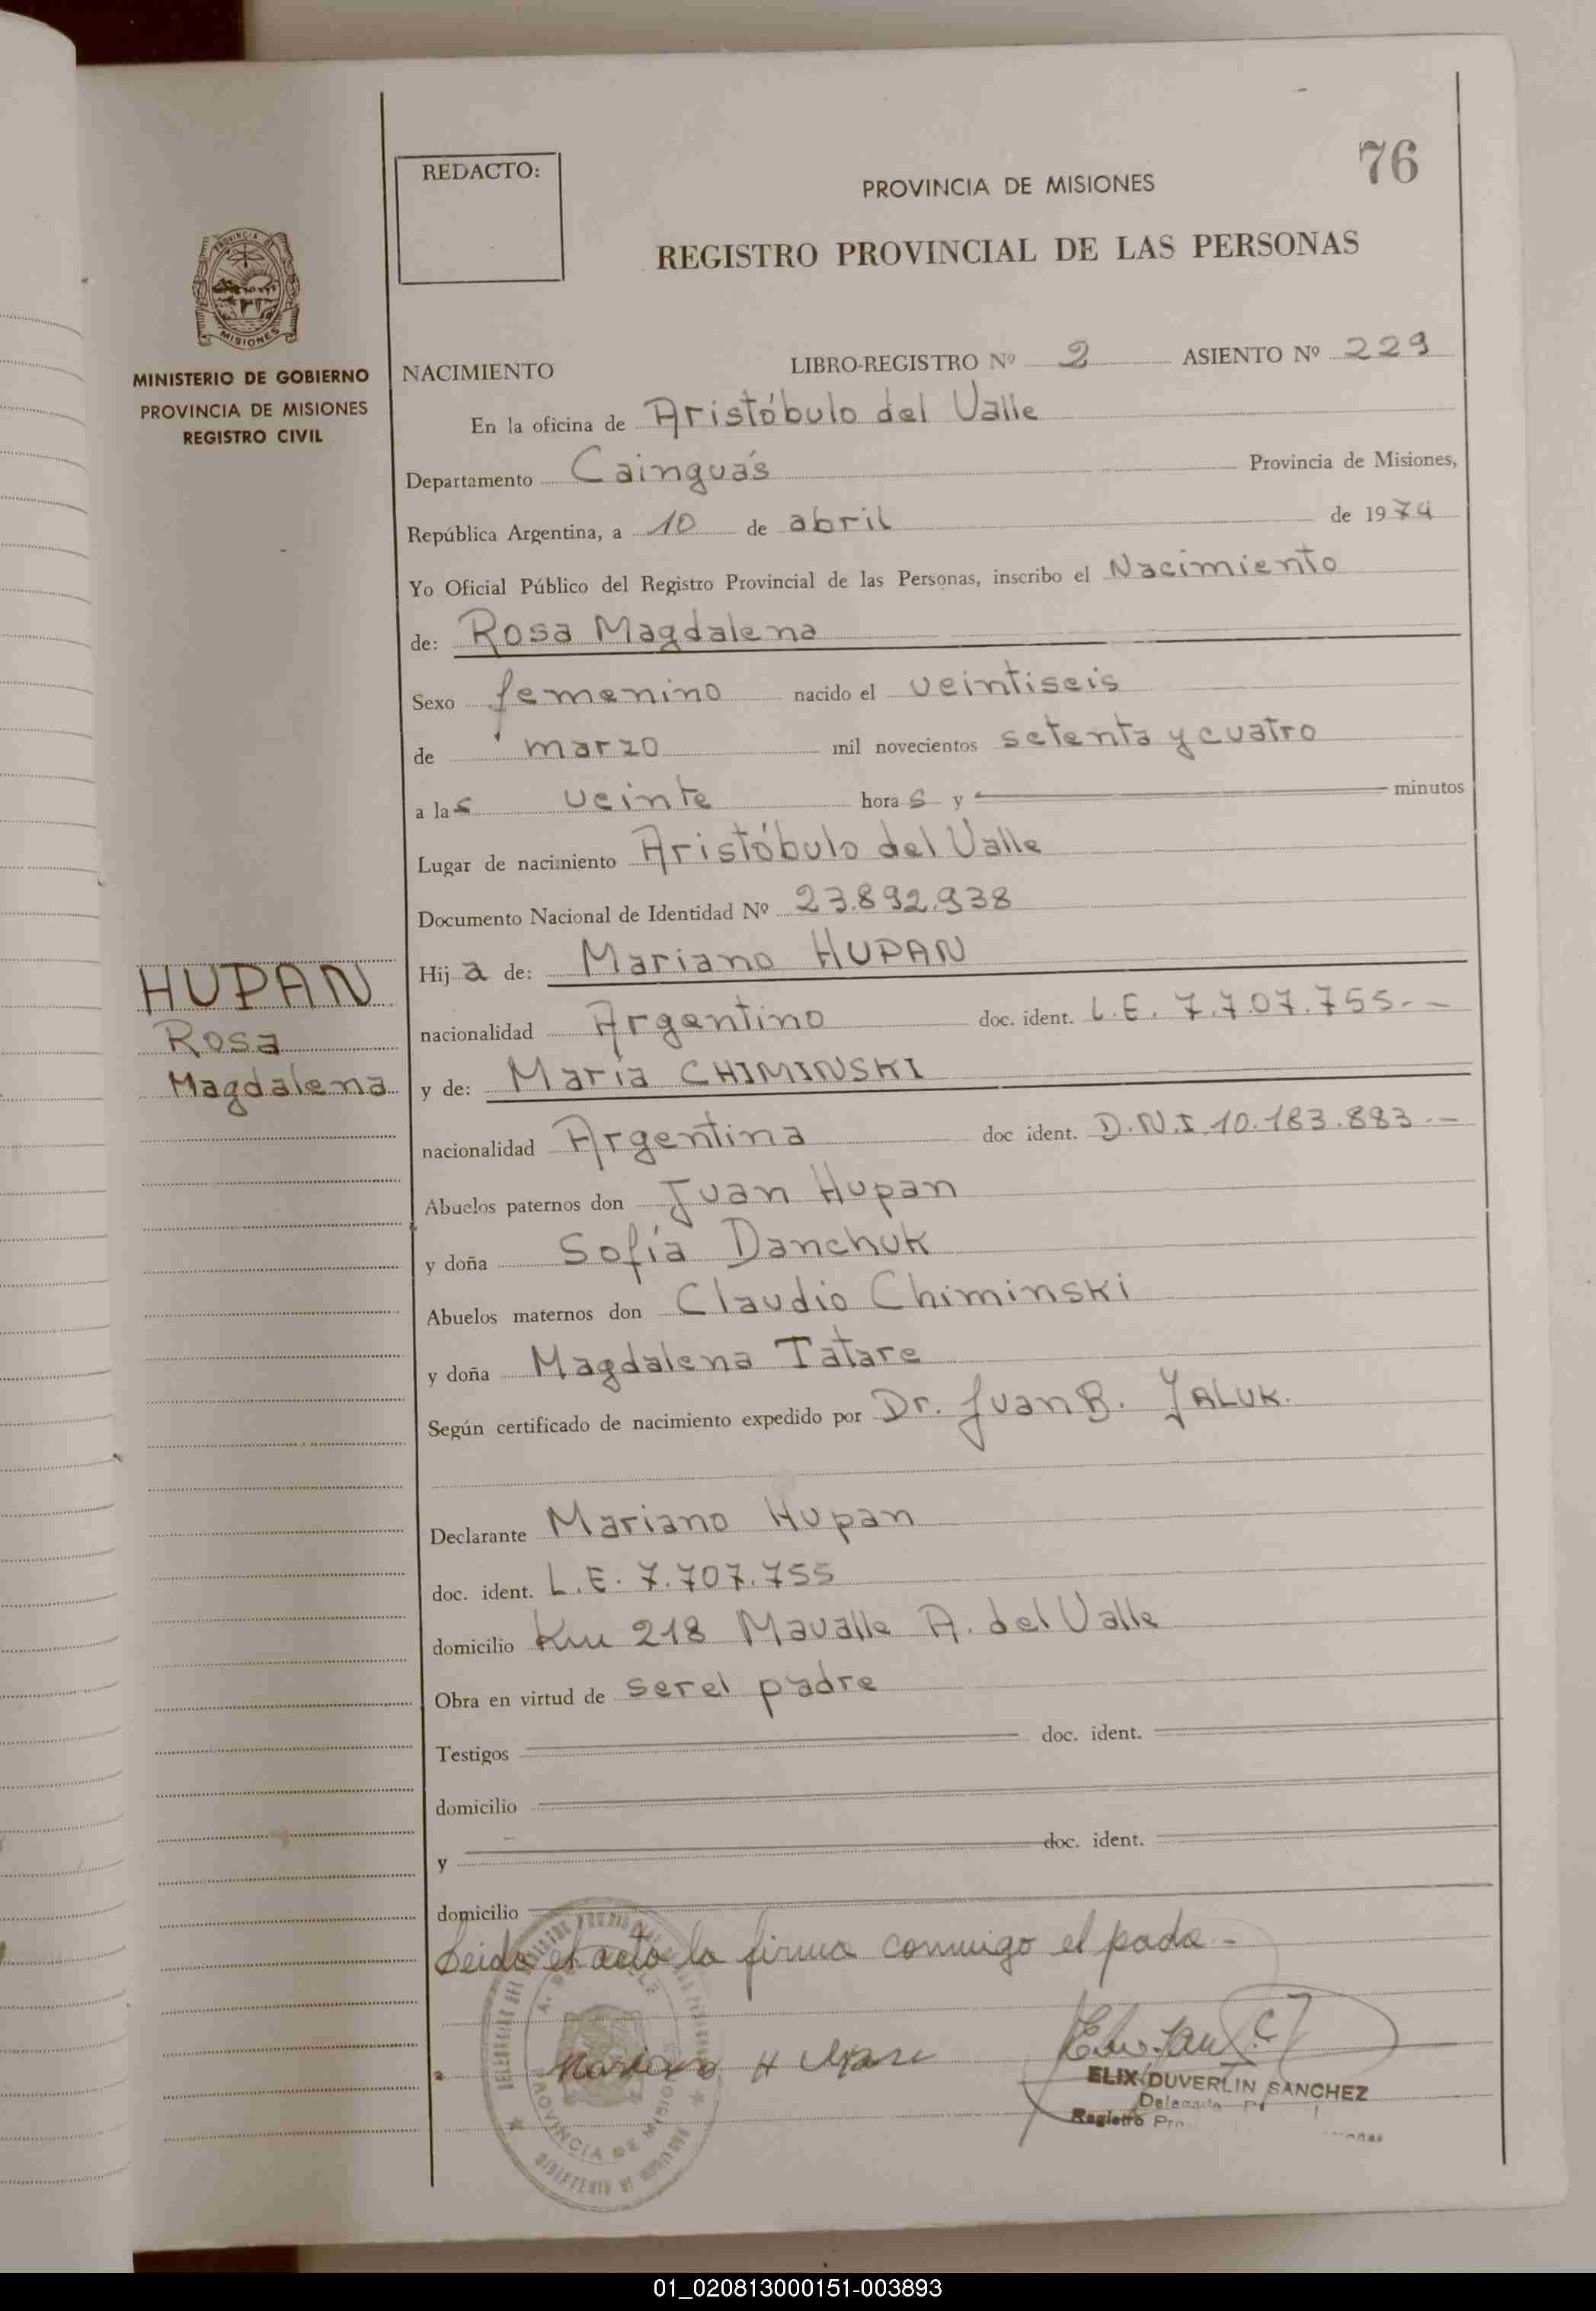 76
REDACTO:
PROVINCIA DE MISIONES
REGISTRO PROVINCIAL DE LAS PERSONAS
PROVINCIA DE
MISIONES
MINISTERIO DE GOBIERNO
PROVINCIA DE MISIONES
REGISTRO CIVIL
NACIMIENTO LIBRO-REGISTRO Nº 2 ASIENTO Nº 229
En la oficina de Aristóbulo del Valle
Departamento Cainguás Provincia de Misiones,
República Argentina, a 10 de abril de 1974
Yo Oficial Público del Registro Provincial de las Personas, inscribo el Nacimiento
de: Rosa Magdalena
Sexo femenino nacido el veintiseis
de marzo mil novecientos setenta y cuatro
a las veinte horas y minutos
Lugar de nacimiento Aristóbulo del Valle
Documento Nacional de Identidad Nº 23.892.938
HUPAN
Rosa
Magdalena
Hija de: Mariano HUPAN
nacionalidad Argentino doc. ident. L.E. 7.707.755.-
y de: María CHIMINSKI
nacionalidad Argentina doc ident. D.N.I. 10.183.883.-
Abuelos paternos don Juan Hupan
y doña Sofía Danchuk
Abuelos maternos don Claudio Chiminski
y doña Magdalena Tatare
Según certificado de nacimiento expedido por Dr. Juan B. YALUK.
Declarante Mariano Hupan
doc. ident. L.E. 7.707.755
domicilio Km 218 Mavalle A. del Valle
Obra en virtud de ser el padre
Testigos doc. ident.
domicilio
y doc. ident.
domicilio
Leida el acta la firma conmigo el padre.-
Mariano Hupan
ELIX DUVERLIN SANCHEZ
Registro
PROVINCIA DE MISIONES
01_020813000151-003893